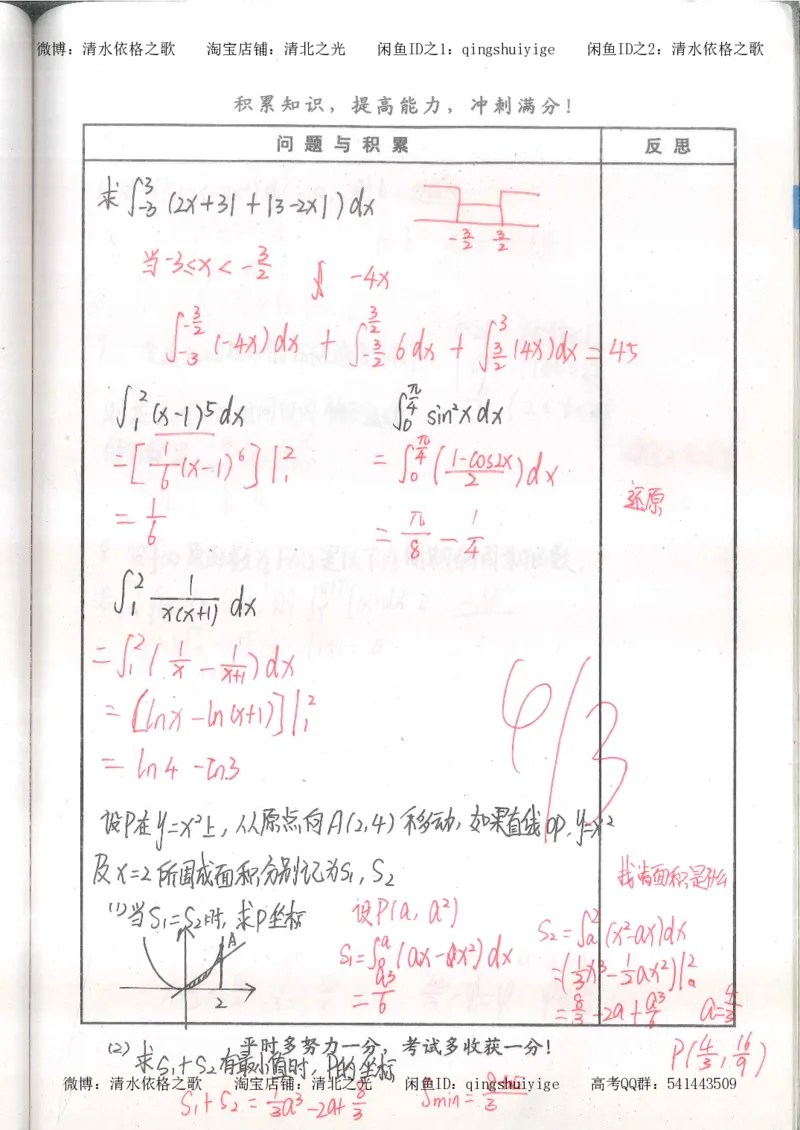 微博：清水依格之歌 淘宝店铺：清北之光 闲鱼ID之1：qingshuiyige 闲鱼ID之2：清水依格之歌
积累知识，提高能力，冲刺满分！
问题与积累 反思
求∫₋₃³(|2x+3|+|3-2x|)dx
-3/2 3/2
当-3≤x<-3/2 ∫ -4x
∫₋₃^(-3/2)(-4x)dx + ∫_(-3/2)^(3/2) 6dx + ∫_(3/2)^3 (4x)dx = 45
∫₁²(x-1)⁵dx ∫₀^(π/4) sin²xdx
=[1/6(x-1)⁶]|₁² = ∫₀^(π/4)((1-cos2x)/2)dx
还原
=1/6 = π/8 - 1/4
∫₁² 1/(x(x+1)) dx
=∫₁²(1/x - 1/(x+1))dx
= [lnx-ln(x+1)]|₁²
= ln4-ln3
4/3
设P在y=x²上，从原点向A(2,4)移动，如果直线OP，y=x²
及x=2所围成面积分别记为S₁，S₂
找清面积是什么
(1)当S₁=S₂时，求P坐标 设P(a,a²)
A
2
S₁=∫₀^a(ax-x²)dx
=a³/6
S₂=∫_a^2(x²-ax)dx
=(1/3x³-1/2ax²)|_a^2
=8/3-2a+a³/6 a=4/3
P(4/3,16/9)
平时多努力一分，考试多收获一分！
(2)求S₁+S₂有最小值时，P的坐标
微博：清水依格之歌 淘宝店铺：清北之光 闲鱼ID：qingshuiyige 高考QQ群：541443509
S₁+S₂=1/3a³-2a+8/3 Smin=